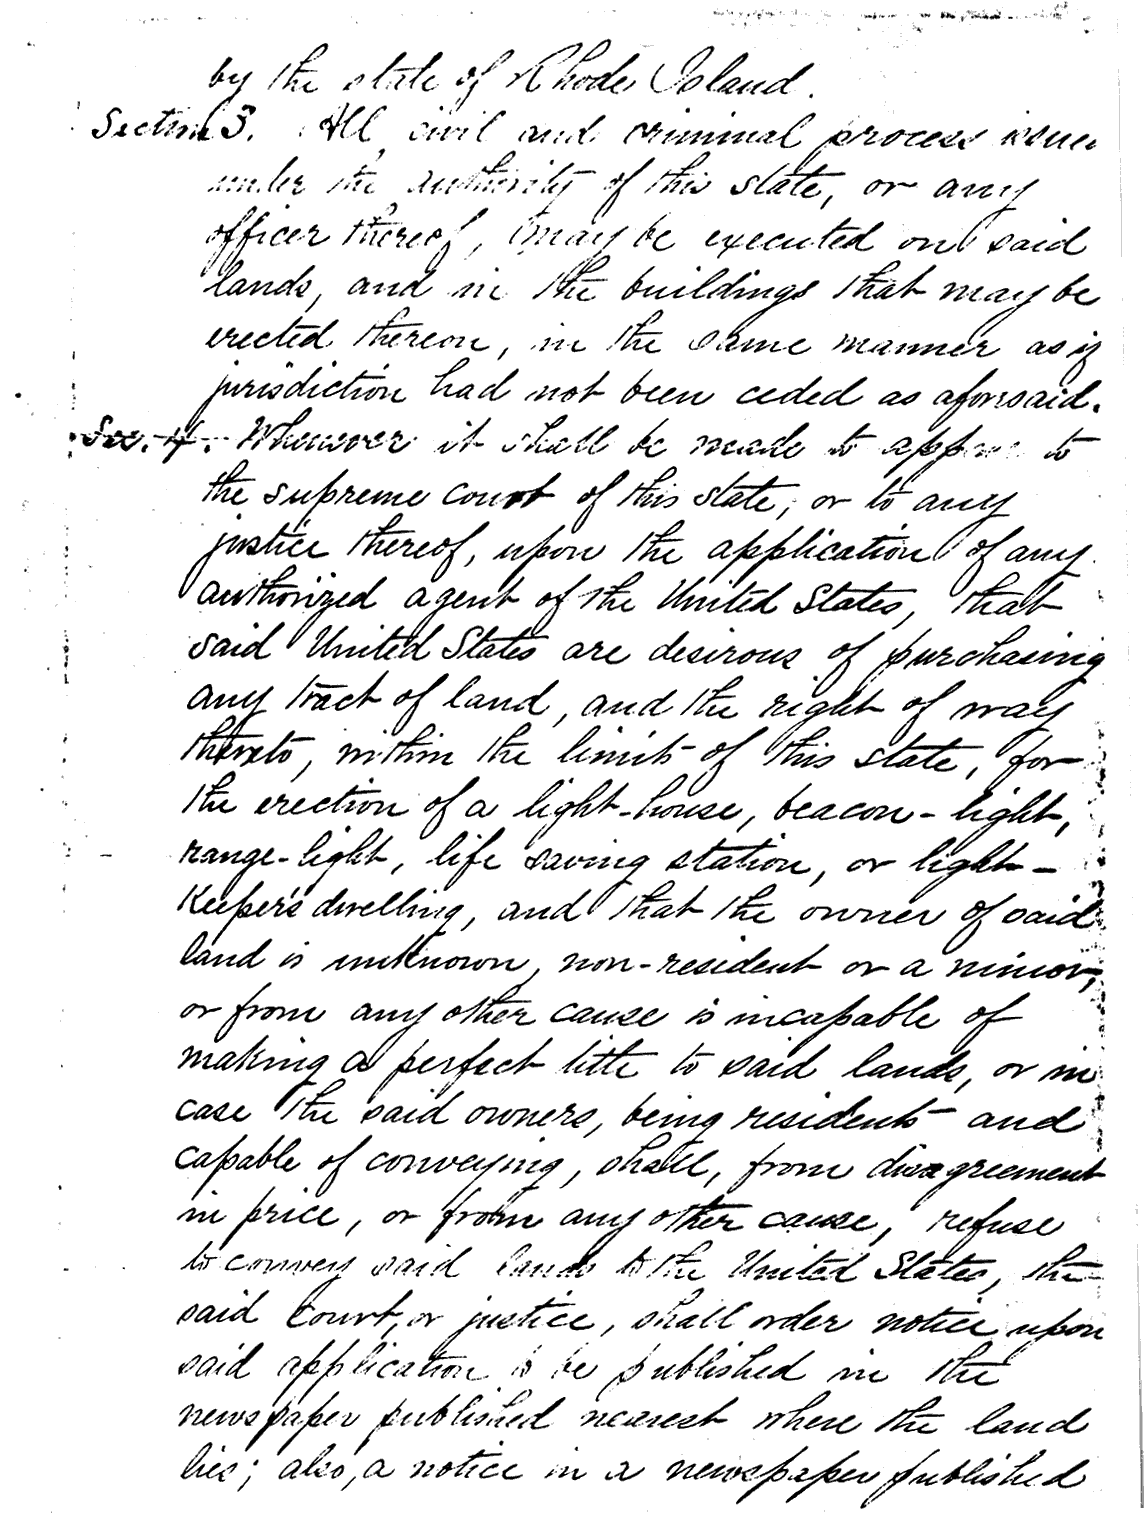 by the state of Rhode Island.
Section 3. All civil and criminal process issued
under the authority of this state, or any
officer thereof, may be executed on said
lands, and in the buildings that may be
erected thereon, in the same manner as if
jurisdiction had not been ceded as aforesaid.
Sec. 4. Whenever it shall be made to appear to
the supreme court of this state, or to any
justice thereof, upon the application of any
authorized agent of the United States, that
said United States are desirous of purchasing
any tract of land, and the right of way
thereto, within the limits of this state, for
the erection of a light-house, beacon-light,
range-light, life saving station, or light-
Keeper's dwelling, and that the owner of said
land is unknown, non-resident or a minor,
or from any other cause is incapable of
making a perfect title to said lands, or in
case the said owners, being residents and
capable of conveying, shall, from disagreement
in price, or from any other cause, refuse
to convey said lands to the United States, the
said court, or justice, shall order notice upon
said application to be published in the
newspaper published nearest where the land
lies; also, a notice in a newspaper published